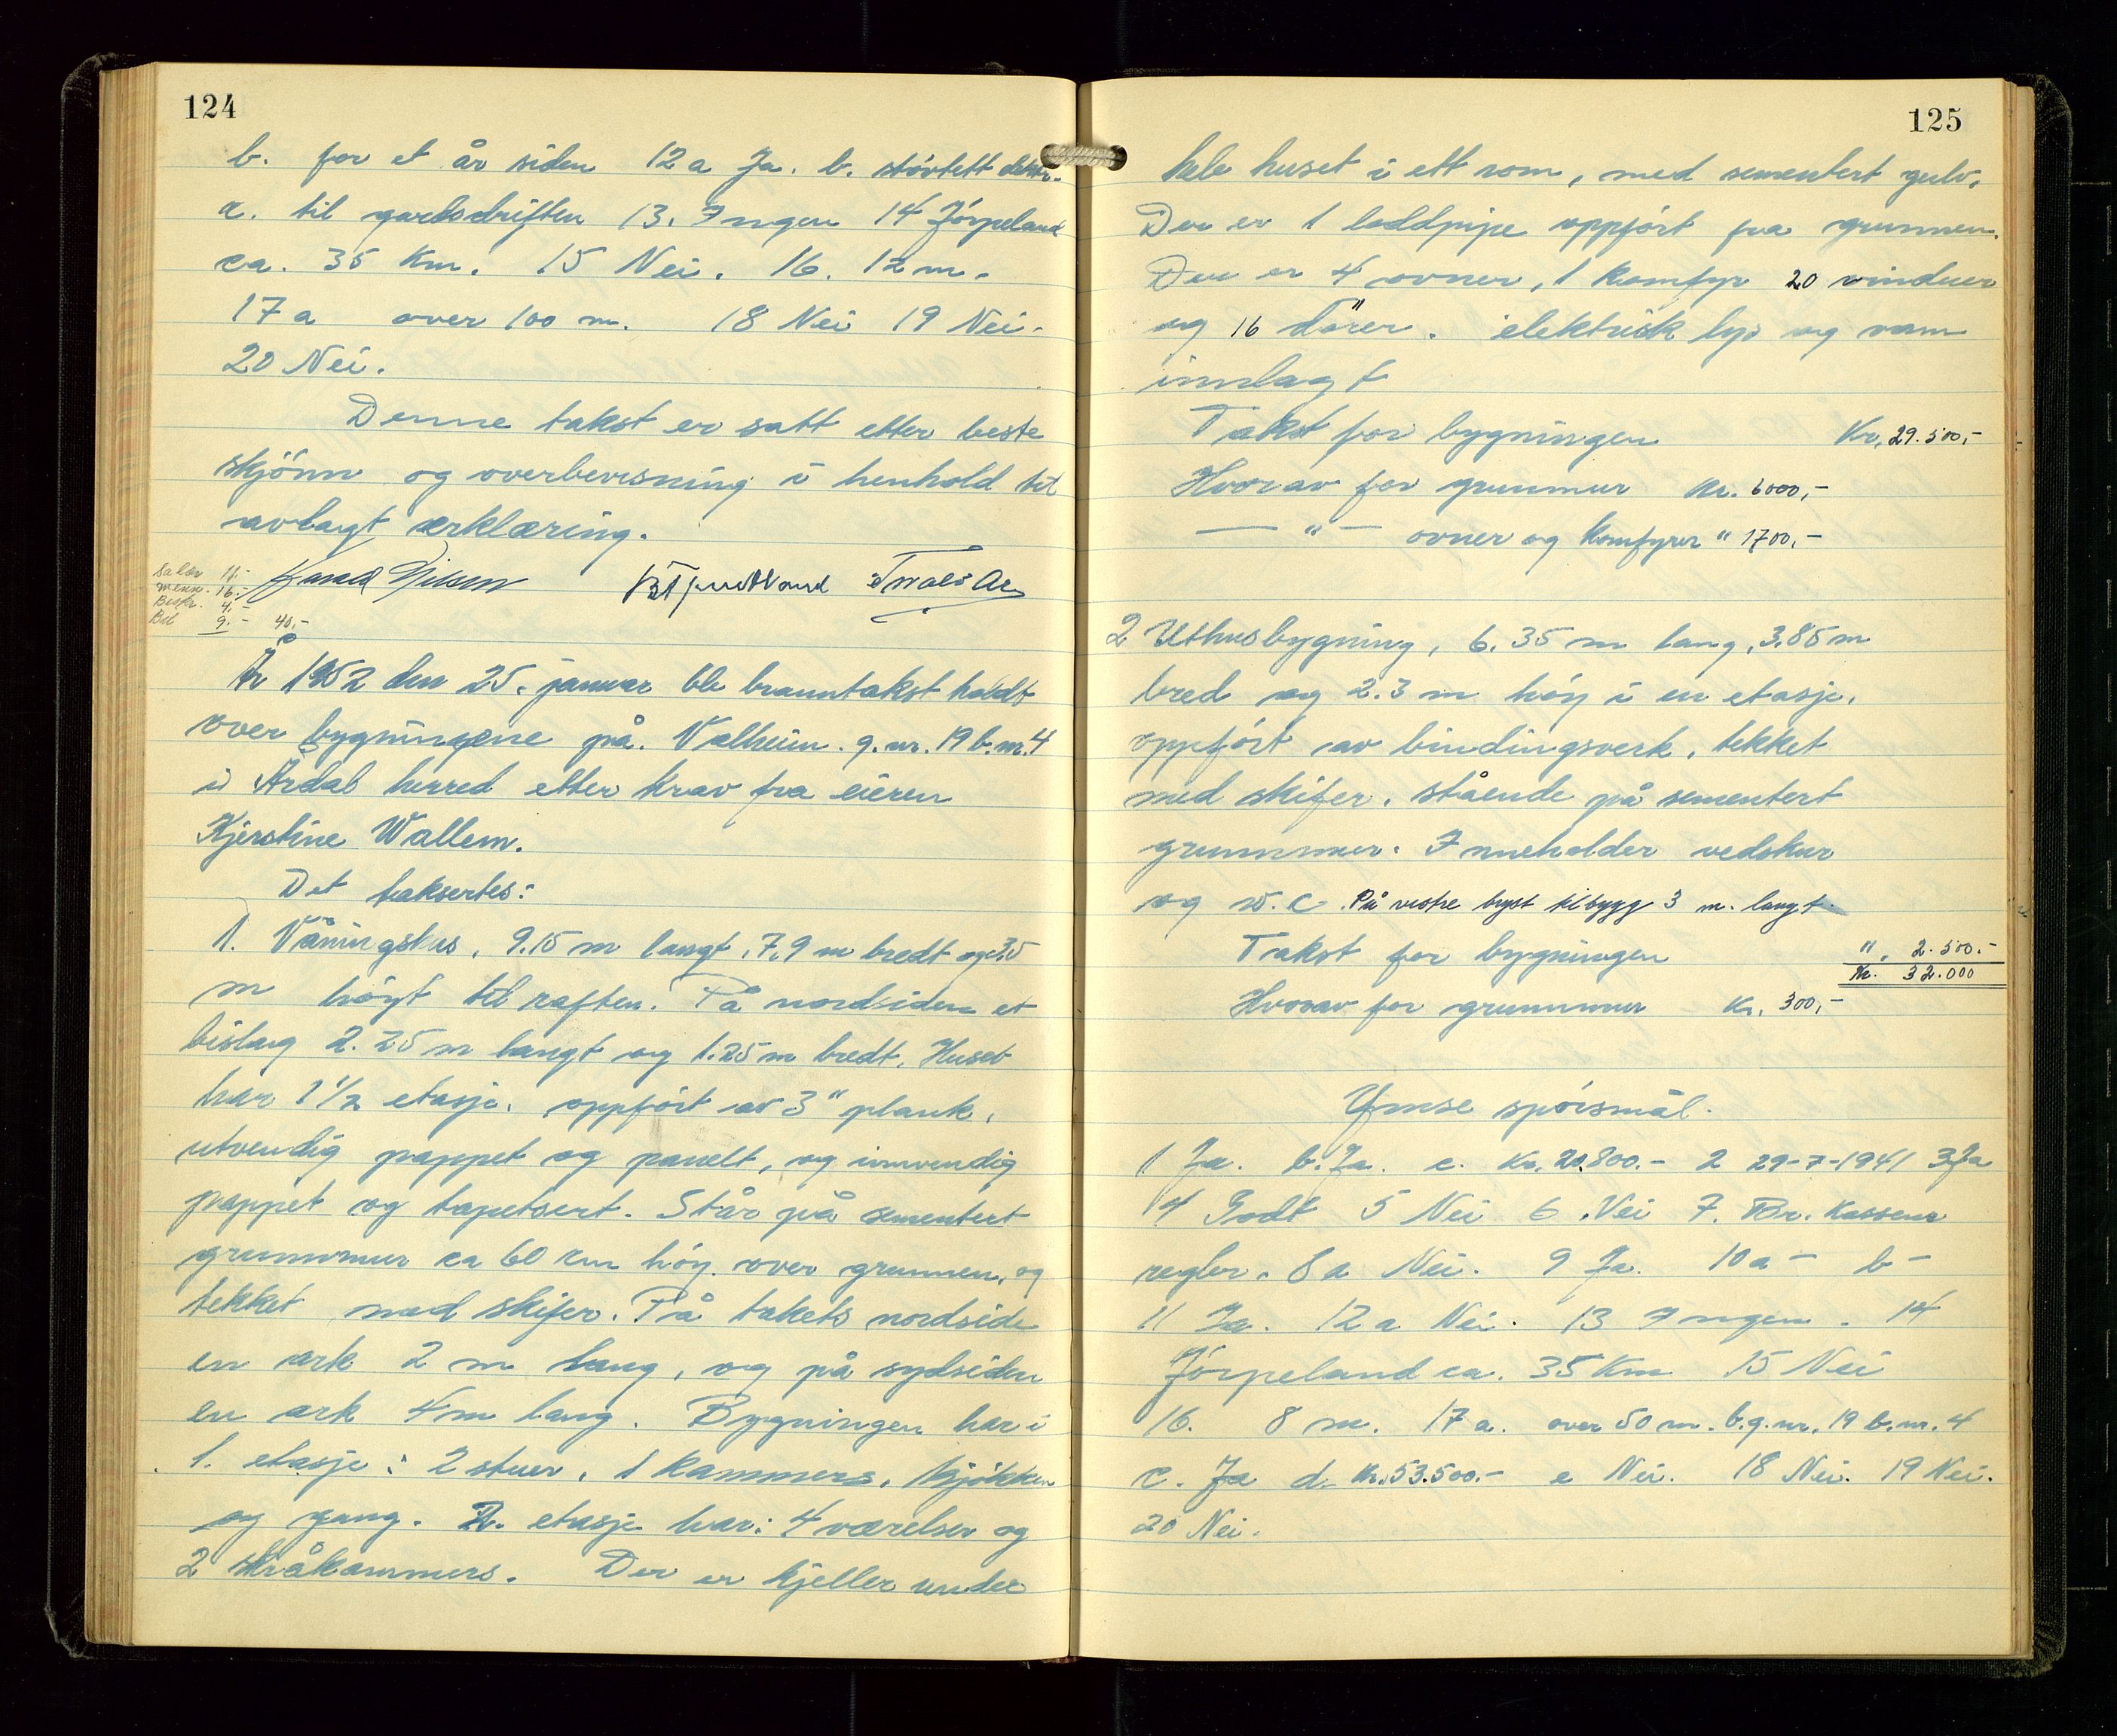 124
b. for et år siden 12 a Ja. b. støvtett elektr.
c. til gardsdriften 13. Ingen 14 Jørpeland
ca. 35 Km. 15 Nei. 16. 12 m.
17 a over 100 m. 18 Nei 19 Nei.
20 Nei.
Denne takst er satt etter beste
skjønn og overbevisning i henhold til
avlagt erklæring.
Salær 11.-
16.-
Beskr. 4.-
Bil 9.- 40,-
År 1952 den 25. januar ble branntakst holdt
over bygningene på. Valheim. g.nr. 19 b.nr. 4
i Årdal herred etter krav fra eieren
Kjerstine Wallem.
Det taksertes:
1. Våningshus, 9.15 m langt, 7,9 m bredt og 3,5
m høyt til raften. På nordsiden et
bislag 2.25 m langt og 1.25 m bredt. Huset
har 1 1/2 etasje. oppført av 3" plank,
utvendig pappet og panelt, og innvendig
pappet og tapetsert. Står på sementert
grunnmur ca 60 cm høy over grunnen, og
tekket med skifer. På takets nordside
en ark 2 m lang, og på sydsiden
en ark 4 m lang. Bygningen har i
1. etasje: 2 stuer, 1 kammers, kjøkken
og gang. 2. etasje har: 4 værelser og
2 skråkammers. Der er kjeller under
125
hele huset i ett rom, med sementert gulv.
Der er 1 loddpipe oppført fra grunnen.
Der er 4 ovner, 1 komfyr 20 vinduer
og 16 dører. elektrisk lys og vann
innlagt
Takst for bygningen Kr. 29.500,-
Hvorav for grunnmur Kr. 6000,-
— " — ovner og komfyrer " 1700,-
2 Uthusbygning, 6.35 m lang, 3.85 m
bred og 2.3 m høy i en etasje.
oppført av bindingsverk, tekket
med skifer, stående på sementert
grunnmur. Inneholder vedskur
og w.c. På vestre bryst tilbygg 3 m. langt.
Takst for bygningen ". 2.500.-
Kr. 32.000
Hvorav for grunnmur Kr. 300,-
Ymse spørsmål.
1 Ja. b. Ja. c. Kr. 20.800.- 2 29-7-1941 3 Ja
4 Godt 5 Nei 6 Nei 7. Br. Kassens
regler. 8 a Nei. 9 Ja. 10 a - b -
11 Ja. 12 a Nei. 13 Ingen. 14
Jørpeland ca. 35 Km 15 Nei
16. 8 m. 17 a. over 50 m. b. g.nr. 19 b.nr. 4
c. Ja d. Kr. 53.500.- e Nei. 18 Nei. 19 Nei.
20 Nei.